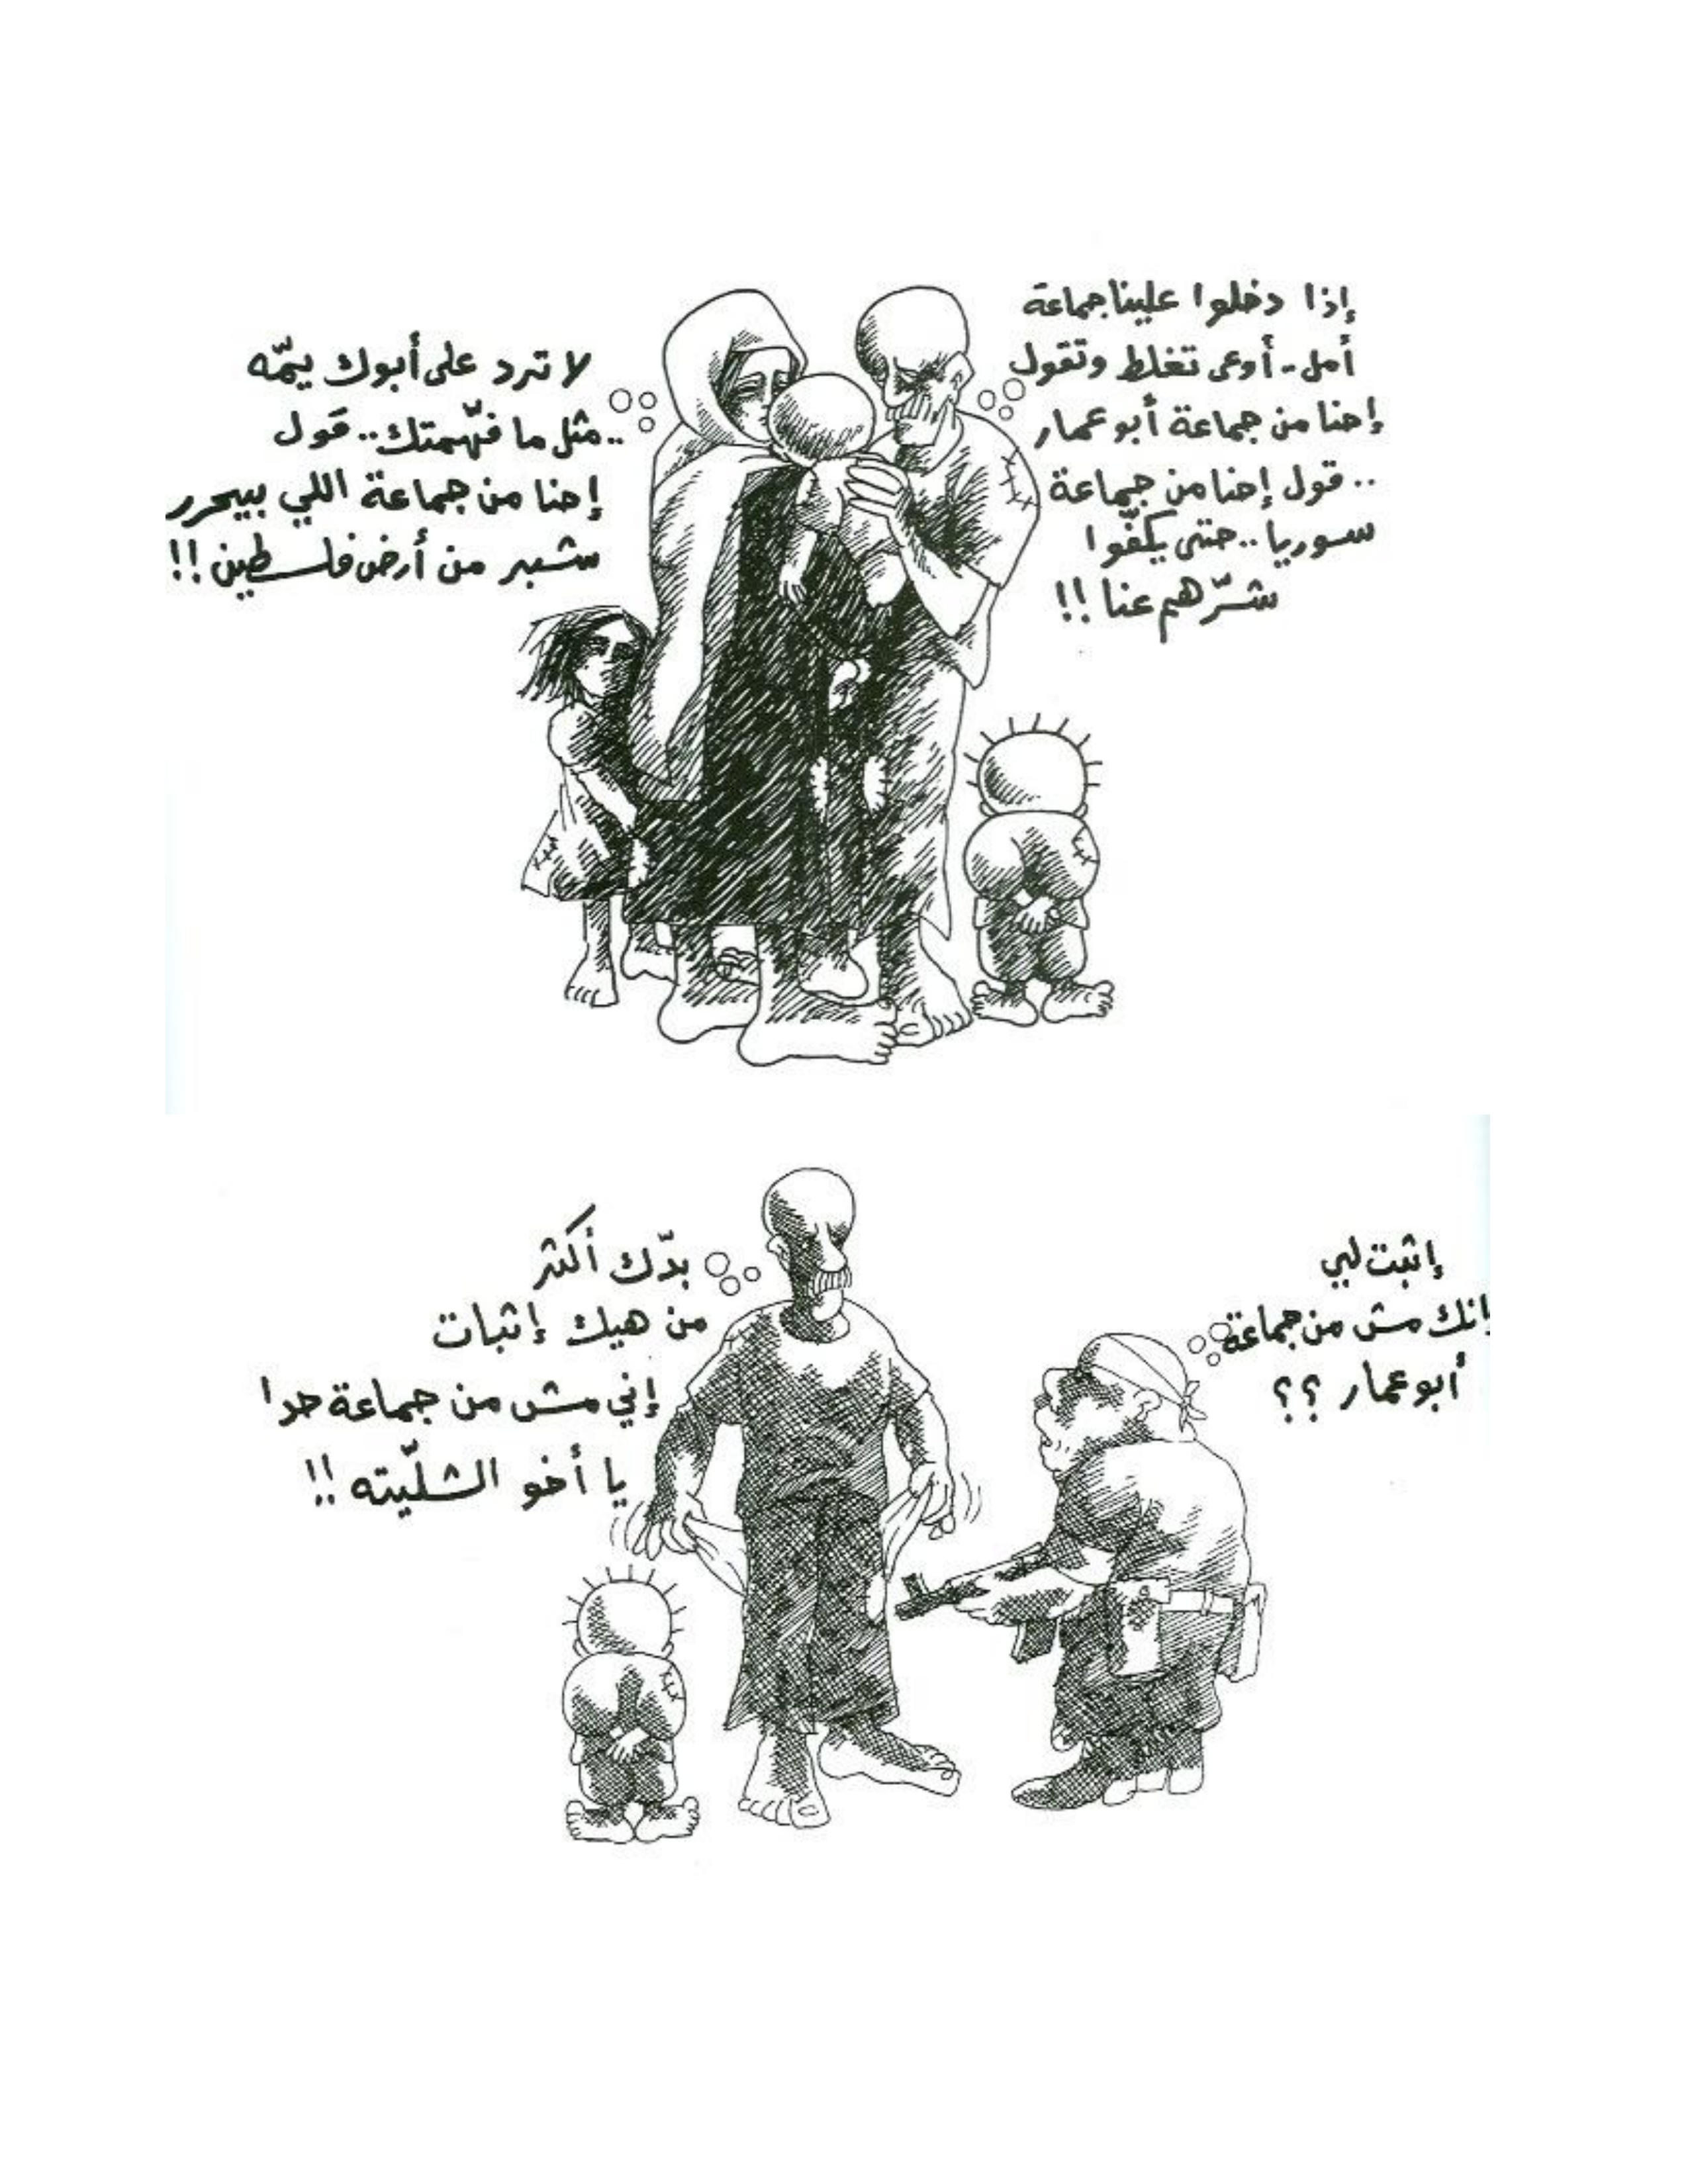 إذا دخلوا علينا جماعة
أمل - أوعى تغلط وتقول
إحنا من جماعة أبو عمار
.. قول إحنا من جماعة
سوريا .. حتى يكفّوا
شرّهم عنا !!
لا ترد على أبوك يمّه
.. مثل ما فهّمتك .. قول
إحنا من جماعة اللي بيحرر
شبر من أرض فلسطين !!
إثبت لي
إنك مش من جماعة
أبو عمار ؟؟
بدّك أكثر
من هيك إثبات
إني مش من جماعة حدا
يا أخو الشلّيته !!